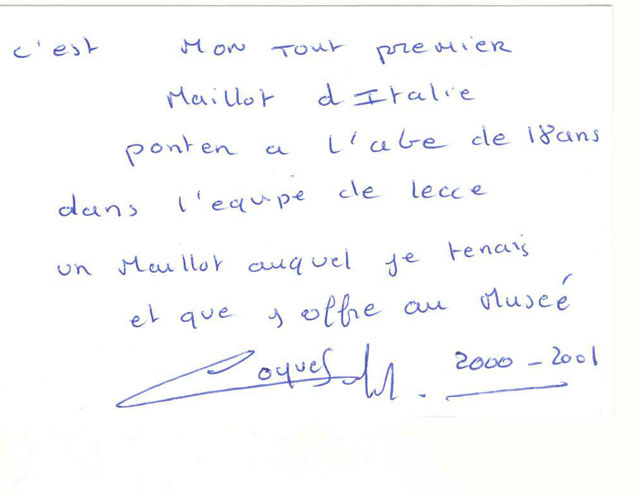 c'est Mon Tout premier
Maillot d Italie
ponten a L'abe de 18ans
dans l'equipe de lecce
un Maillot auquel je tenais
et que j offre au Museé
2000 - 2001